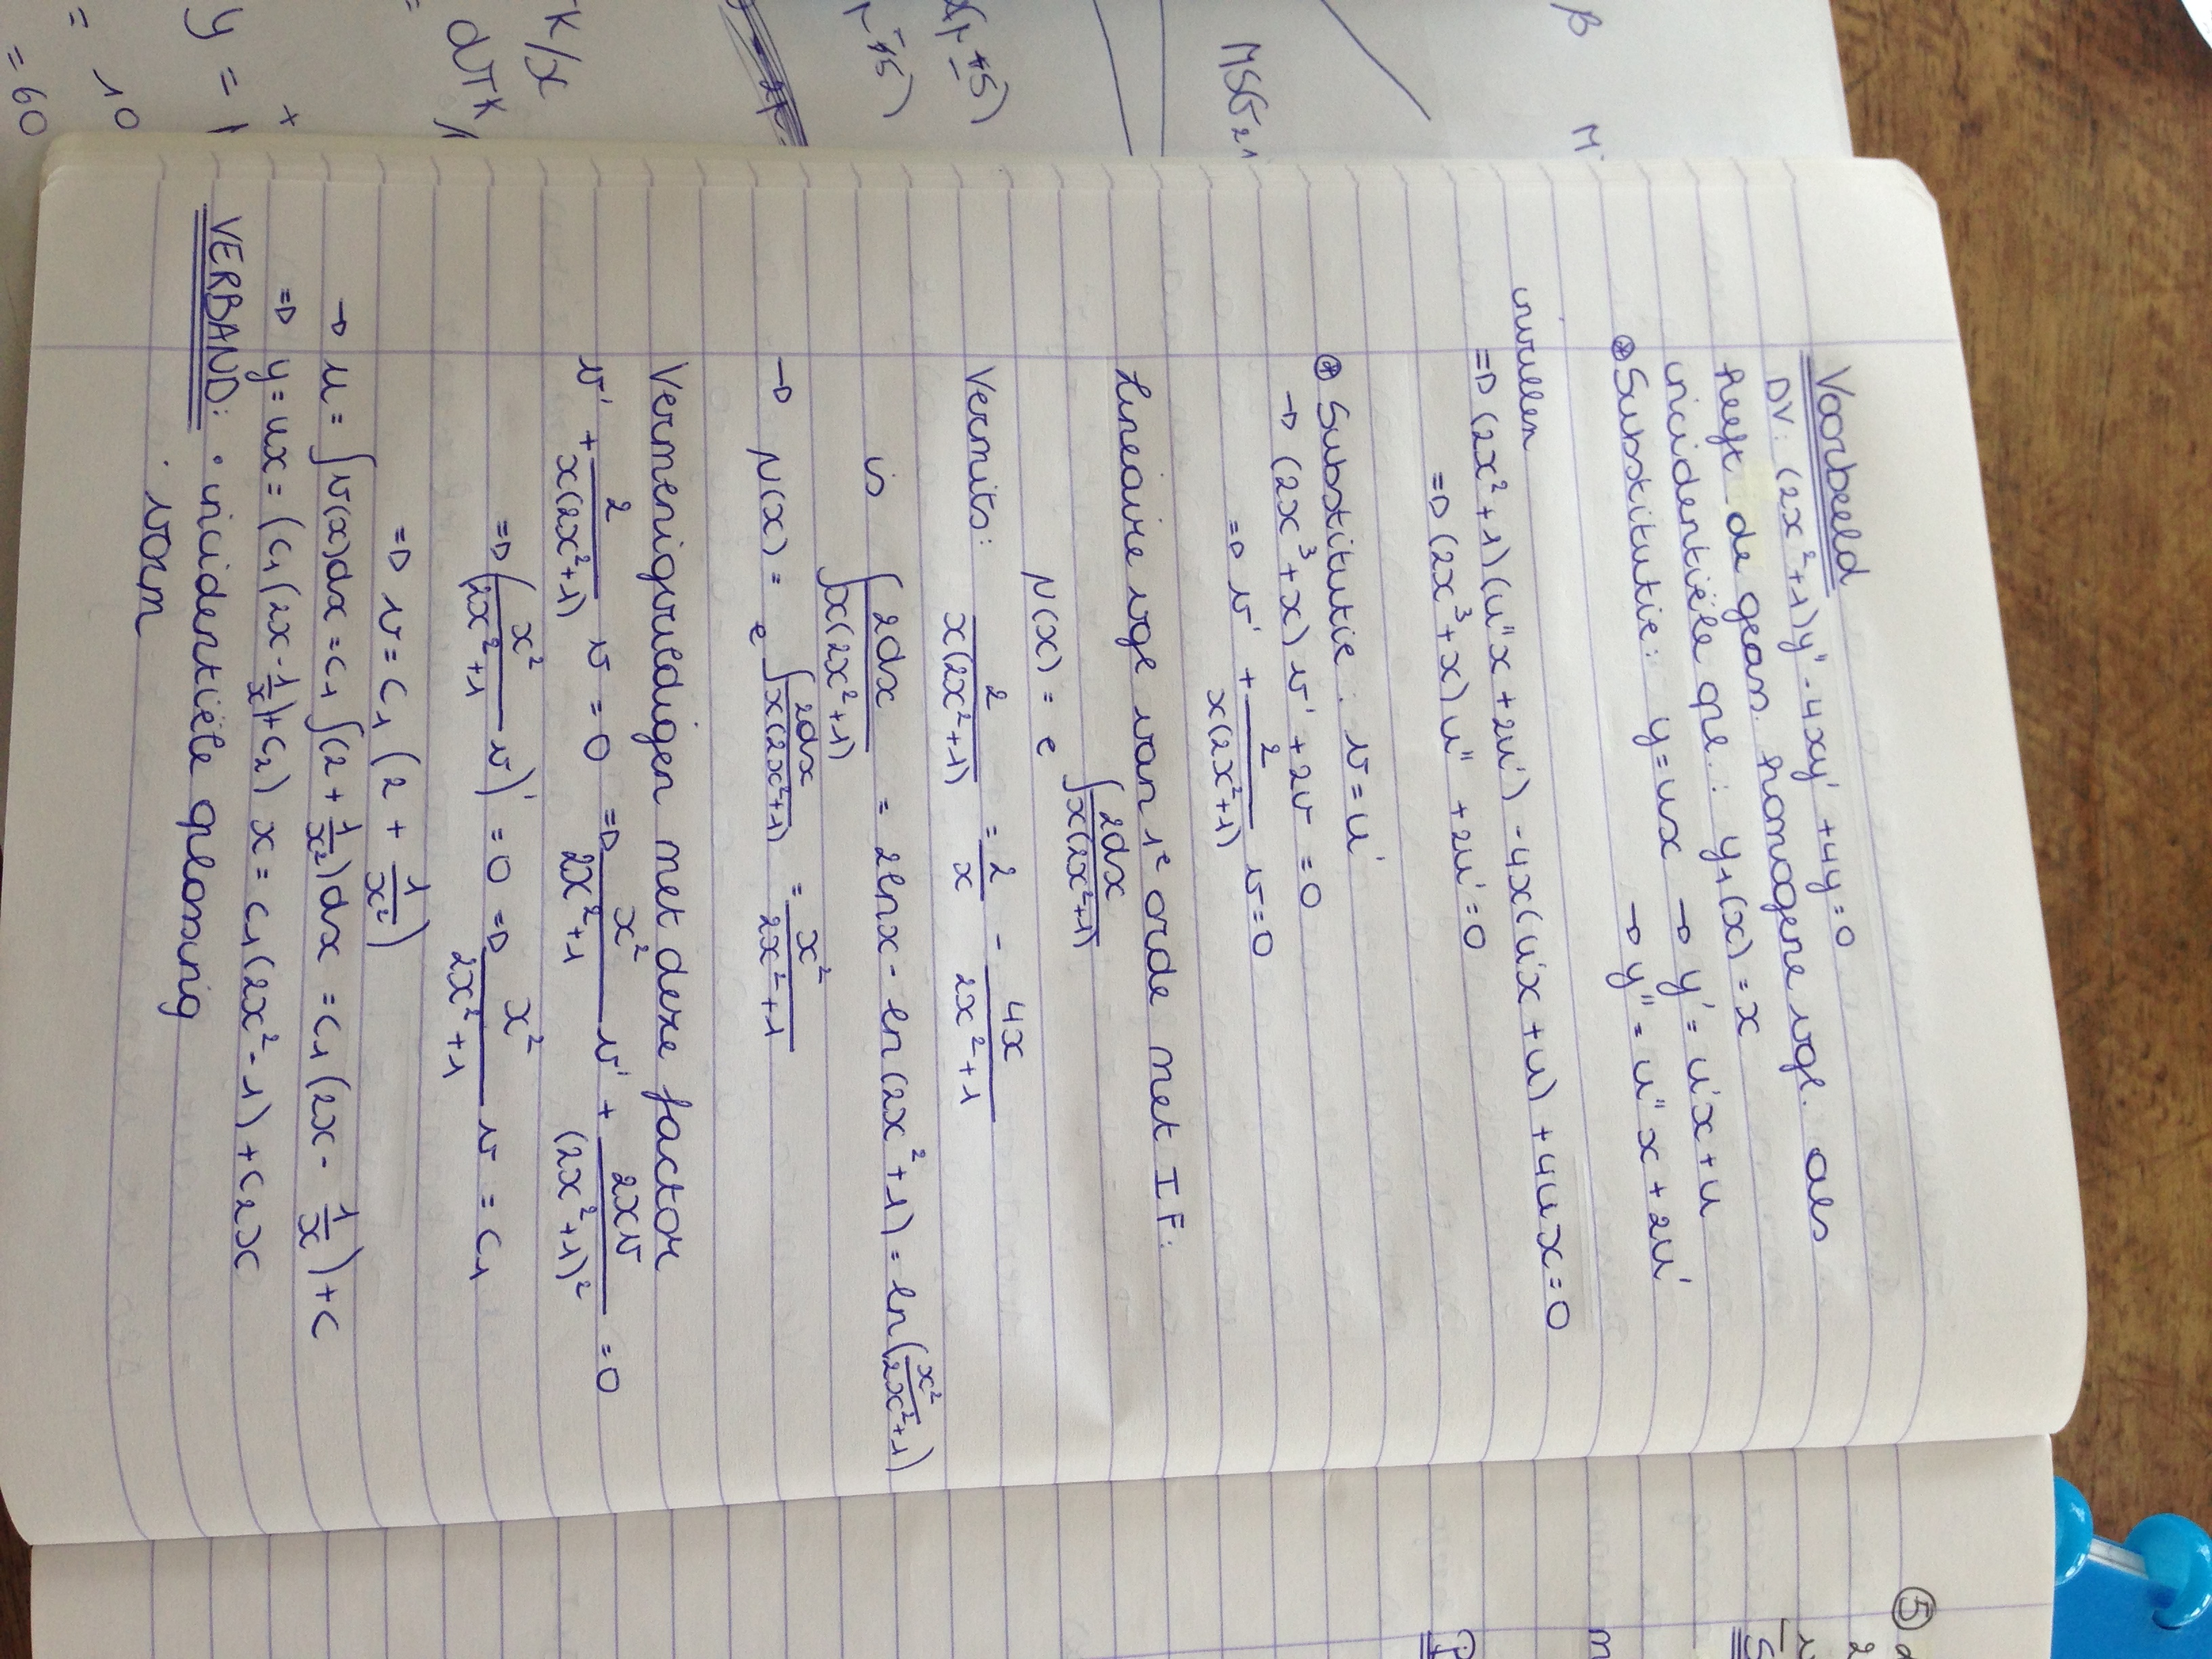 Voorbeeld
DV: (2x²+1)y'' - 4xy' + 4y = 0
heeft de geass. homogene vgl. als
incidentiële opl.: y₁(x) = x
⊛ Substitutie: y = ux → y' = u'x + u
→ y'' = u''x + 2u'
invullen
=> (2x²+1)(u''x + 2u') - 4x(u'x + u) + 4ux = 0
=> (2x³+x)u'' + 2u' = 0
⊛ Substitutie: v = u'
→ (2x³+x)v' + 2v = 0
=> v' + 2/(x(2x²+1)) v = 0
Lineaire vgl van 1e orde met IF:
μ(x) = e^(∫ 2dx/(x(2x²+1)))
Vermits: 2/(x(2x²+1)) = 2/x - 4x/(2x²+1)
is ∫ 2dx/(x(2x²+1)) = 2lnx - ln(2x²+1) = ln(x²/(2x²+1))
→ μ(x) = e^(∫ 2dx/(x(2x²+1))) = x²/(2x²+1)
Vermenigvuldigen met deze factor
v' + 2/(x(2x²+1)) v = 0 => x²/(2x²+1) v' + 2xv/(2x²+1)² = 0
=> (x²/(2x²+1) v)' = 0 => x²/(2x²+1) v = c₁
=> v = c₁(2 + 1/x²)
→ u = ∫v(x)dx = c₁∫(2 + 1/x²)dx = c₁(2x - 1/x) + c
=> y = ux = (c₁(2x - 1/x) + c₂) x = c₁(2x² - 1) + c₂x
VERBAND: • incidentiële oplossing
• vorm
β M
MSG21
K/x
y =
= 10
= 60
⑤
2